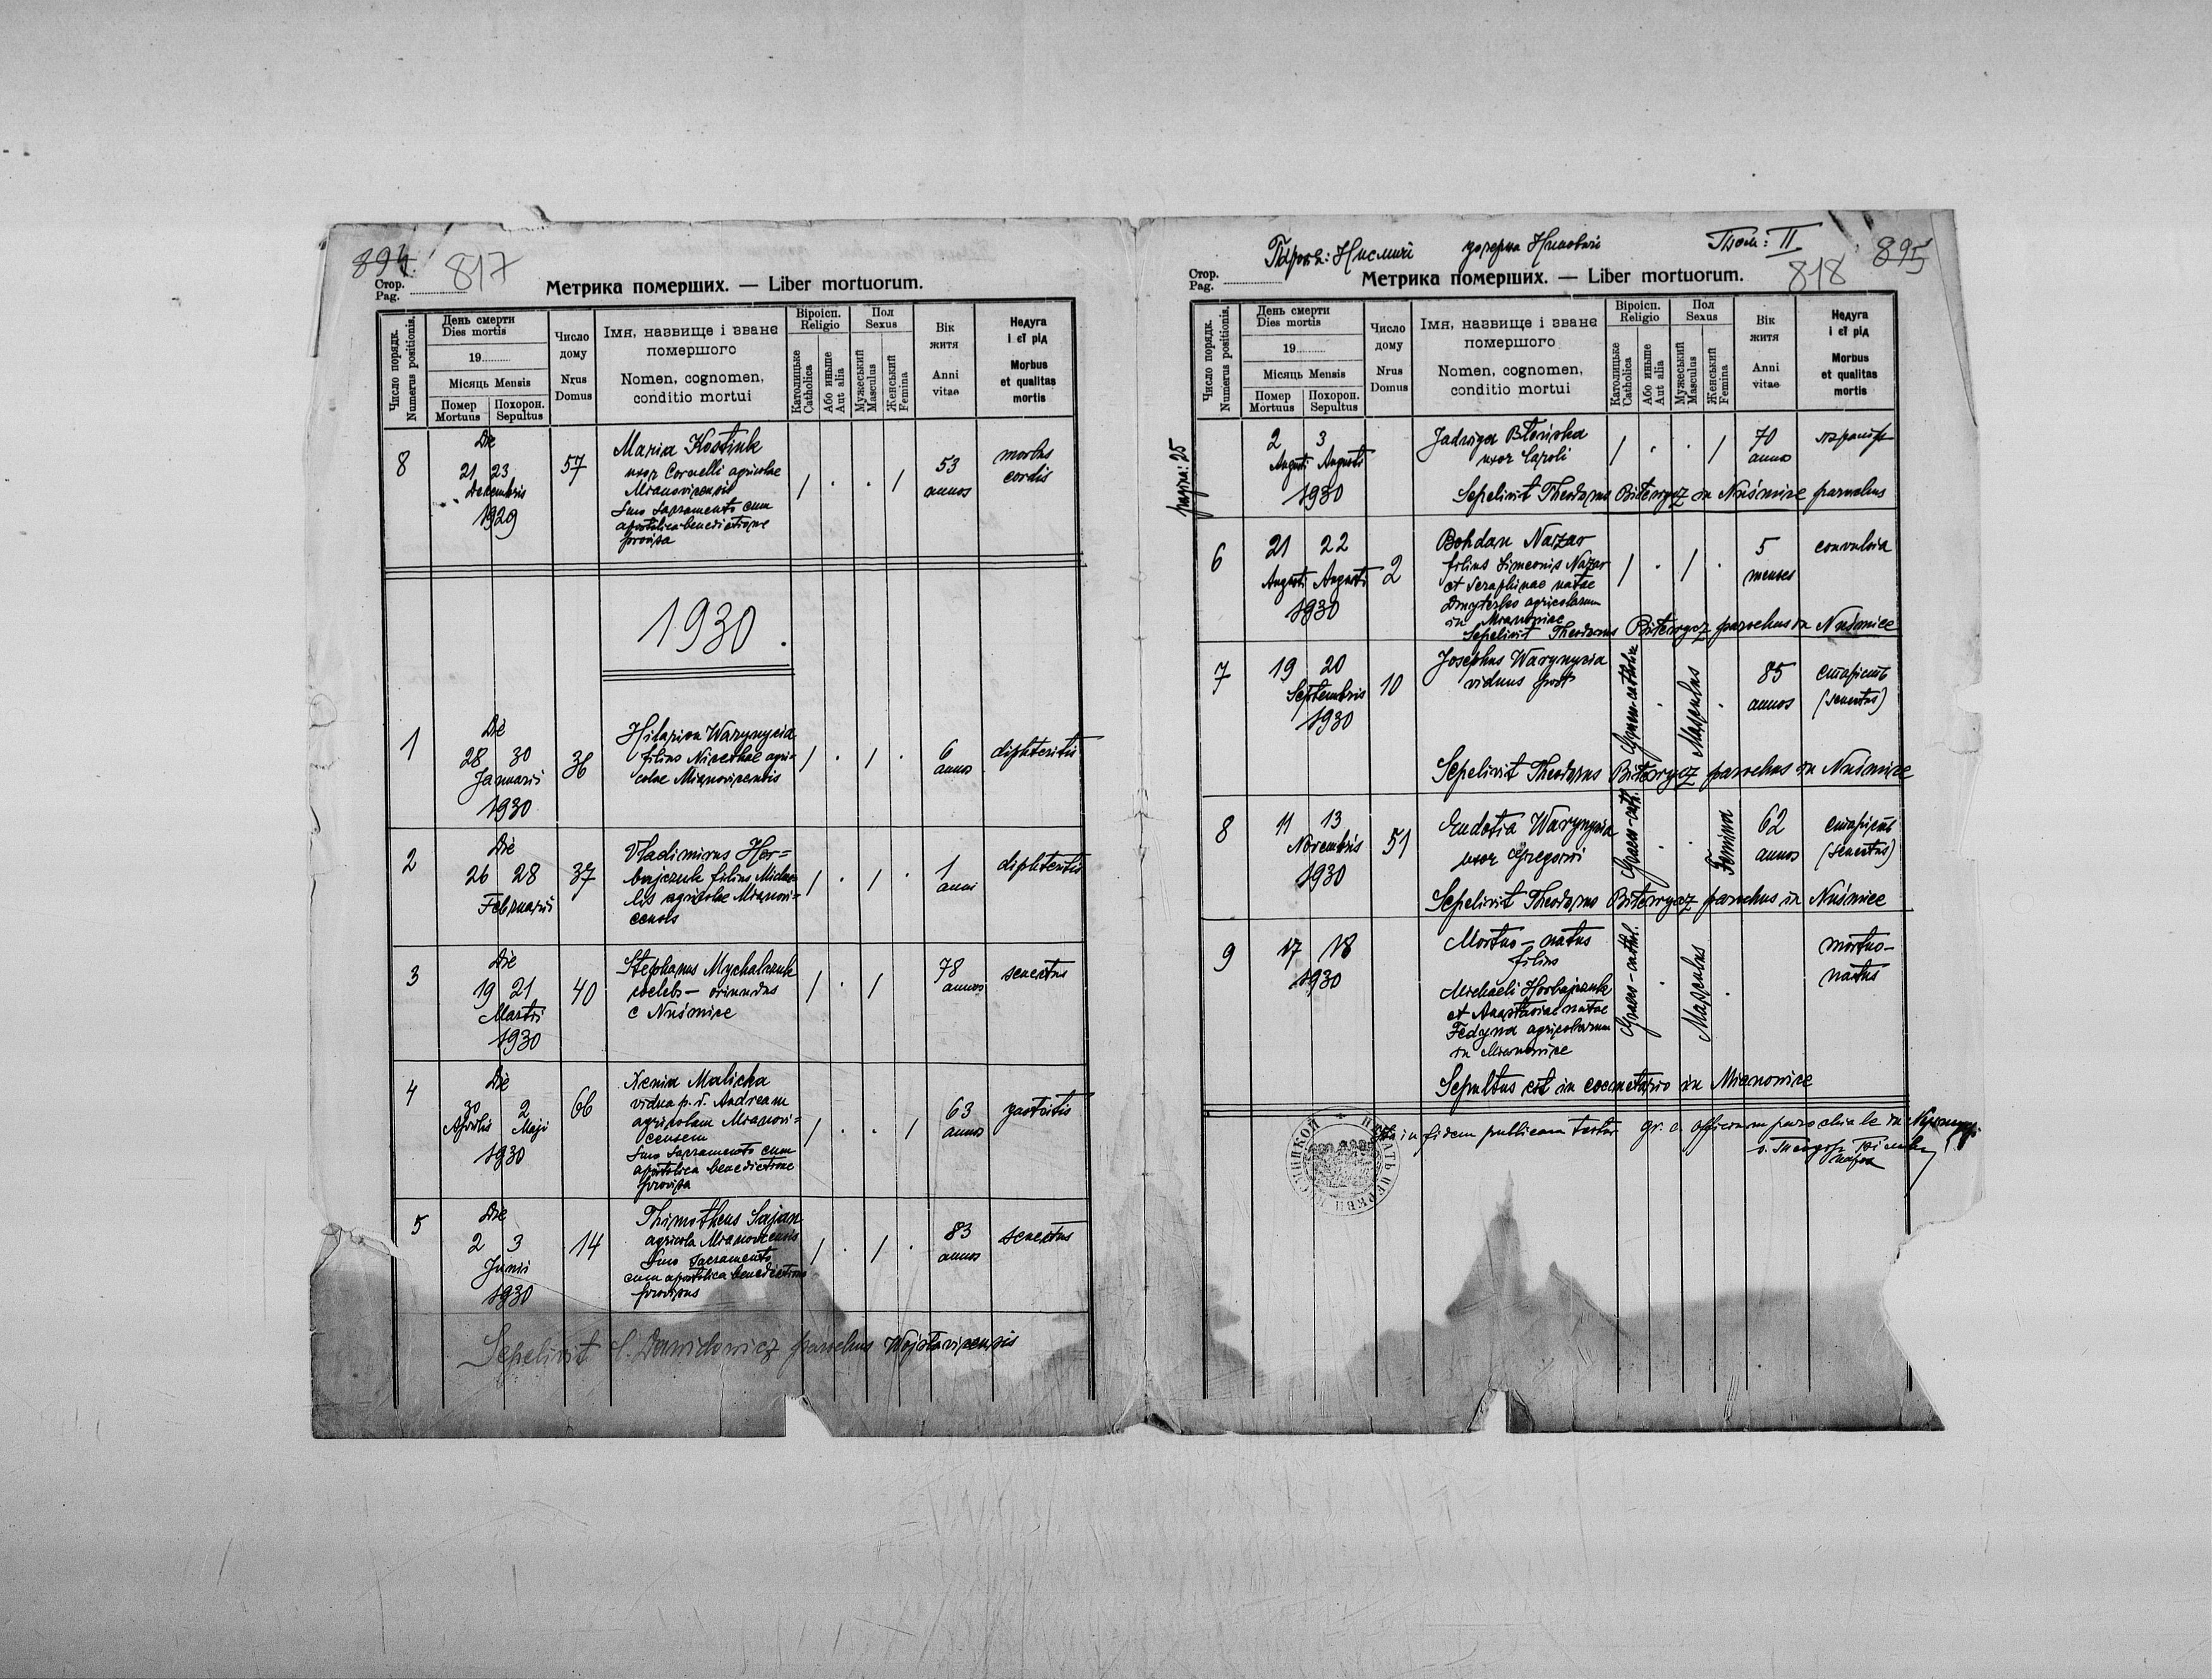 894.
817
Стор.
Pag.
Метрика померших. — Liber mortuorum.
Число порядк.
Numerus positionis.
День смерти
Dies mortis
19
Місяць Mensis
Помер
Mortuus
Похорон.
Sepultus
Число
дому
Nrus
Domus
Імя, назвище і зване
помершого
Nomen, cognomen,
conditio mortui
Віроісп.
Religio
Католицьке
Catholica
Або иньше
Aut alia
Пол
Sexus
Мужеський
Masculus
Женський
Femina
Вік
житя
Anni
vitae
Недуга
і єї рід
Morbus
et qualitas
mortis
8
Die
21 23
Decembris
1929
57
Maria Kostiuk
uxor Cornelli agricolae
Mianovicensis
Smo Sacramento cum
apostolica benedictione
provisa
/ . . /
53
annos
morbus
cordis
1930.
1
Die
28 30
Januarii
1930
36
Hilarion Warynycia
filius Nicethae agri-
colae Mianovicensis
/ . / .
6
annos
diphteritis
2
Die
26 28
Februarii
37
Vladimirus Hor=
bajczuk filius Micha-
lis agricolae Mianovi-
censis
/ . / .
1
anni
diphteritis
3
Die
19 21
Martii
1930
40
Stephanus Mychalczuk
coelebs — oriundus
e Nuśmice
/ . /
78
annos
senectus
4
Die
30 2
Aprilis Maji
1930
66
Xenia Malicka
vidua p. d. Andream
agricolam Mianovi=
censem
Smo Sacramento cum
apostolica benedictione
provisa
/ . . /
63
annos
gastritis
5
Die
2 3
Junii
1930
14
Thimotheus Sajan
agricola Mianovicensis
Smo Sacramento
cum apostolica benedictione
provisus
/ . / .
83
annos
senectus
Sepelivit Dawidowicz parochus Wojslavicensis
Парох.: Нисмичі
Том: II
895
818
Стор.
Pag.
Метрика померших. — Liber mortuorum.
Число порядк.
Numerus positionis.
День смерти
Dies mortis
19
Місяць Mensis
Помер
Mortuus
Похорон.
Sepultus
Число
дому
Nrus
Domus
Імя, назвище і зване
помершого
Nomen, cognomen,
conditio mortui
Віроісп.
Religio
Католицьке
Catholica
Або иньше
Aut alia
Пол
Sexus
Мужеський
Masculus
Женський
Femina
Вік
житя
Anni
vitae
Недуга
і єї рід
Morbus
et qualitas
mortis
pagina: 25
2 3
Augusti Augusti
1930
Jadviga Błońska
uxor Caroli
/ . . /
70
annos
Sepelivit Theodorus Bitewycz in Nuśmice parochus
6
21 22
Augusti Augusti
1930
2
Bohdan Nazar
filius Simeonis Nazar
et Seraphinae natae
Dmyterko agricolarum
in Mianovice
/ . / .
5
menses
convulsia
Sepelivit Theodorus Bitewycz parochus in Nuśmice
7
19 20
Septembris
1930
10
Josephus Warynycia
viduus post
Graeco-catholica
.
Masculus
.
85
annos
старість
(senectus)
Sepelivit Theodorus Bitewycz parochus in Nuśmice
8
11 13
Novembris
1930
51
Eudotia Warynycia
uxor Gregorii
Graeco-cath.
.
.
Femina
62
annos
старість
(senectus)
Sepelivit Theodorus Bitewycz parochus in Nuśmice
9
17 18
1930
Mortuo-natus
filius
Michaeli Horbajczuk
et Anastasiae natae
Fedyna agricolarum
in Mianowice
Graeco-cathol.
.
Masculus
.
mortuo-
natus
Sepultus est in coemetario in Mianowice
in fidem publicam testor gr. c. officium parochiale in
парох